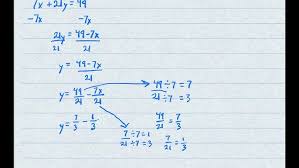 7x + 21y = 49
-7x -7x
21y/21 = 49-7x/21
y = 49-7x/21
y = 49/21 - 7x/21
49÷7 = 7
21÷7 = 3
y = 7/3 - 1/3
7÷7 = 1
21÷7 = 3
49/21 = 7/3
7/21 = 1/3